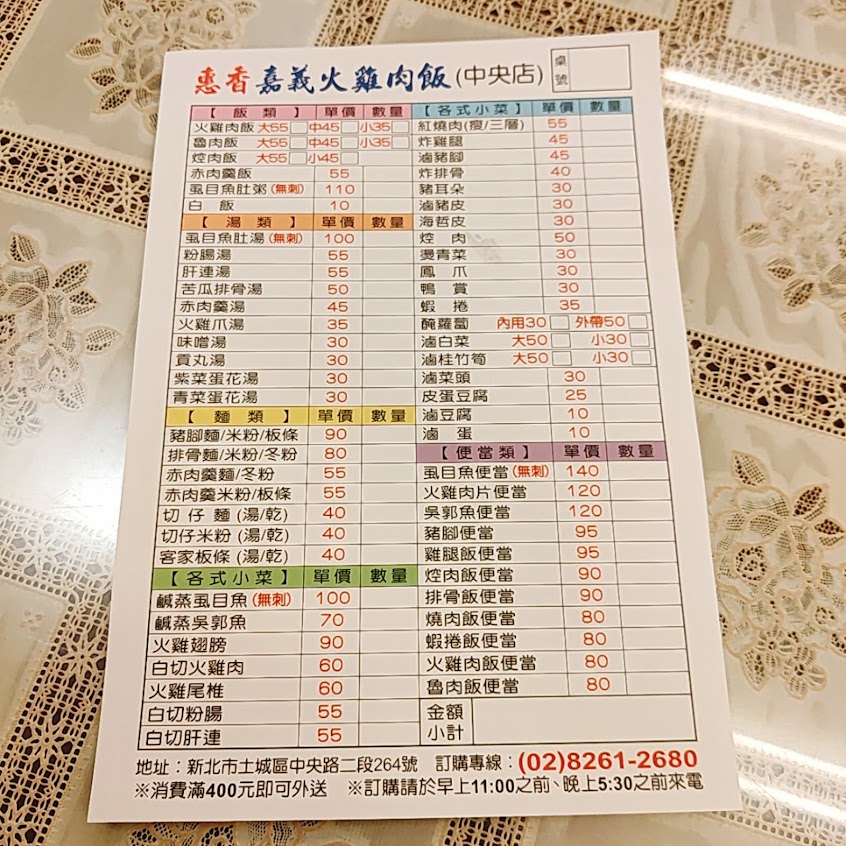 惠香嘉義火雞肉飯(中央店) 桌號
【飯類】 單價 數量
火雞肉飯 大55 中45 小35
魯肉飯 大55 中45 小35
焢肉飯 大55 小45
赤肉羹飯 55
虱目魚肚粥(無刺) 110
白飯 10
【湯類】 單價 數量
虱目魚肚湯(無刺) 100
粉腸湯 55
肝連湯 55
苦瓜排骨湯 50
赤肉羹湯 45
火雞爪湯 35
味噌湯 30
貢丸湯 30
紫菜蛋花湯 30
青菜蛋花湯 30
【麵類】 單價 數量
豬腳麵/米粉/板條 90
排骨麵/米粉/冬粉 80
赤肉羹麵/冬粉 55
赤肉羹米粉/板條 55
切仔麵(湯/乾) 40
切仔米粉(湯/乾) 40
客家板條(湯/乾) 40
【各式小菜】 單價 數量
鹹蒸虱目魚(無刺) 100
鹹蒸吳郭魚 70
火雞翅膀 90
白切火雞肉 60
火雞尾椎 60
白切粉腸 55
白切肝連 55
【各式小菜】 單價 數量
紅燒肉(瘦/三層) 55
炸雞腿 45
滷豬腳 45
炸排骨 40
豬耳朵 30
滷豬皮 30
海哲皮 30
焢肉 50
燙青菜 30
鳳爪 30
鴨賞 30
蝦捲 35
醃蘿蔔 內用30 外帶50
滷白菜 大50 小30
滷桂竹筍 大50 小30
滷菜頭 30
皮蛋豆腐 25
滷豆腐 10
滷蛋 10
【便當類】 單價 數量
虱目魚便當(無刺) 140
火雞肉片便當 120
吳郭魚便當 120
豬腳便當 95
雞腿飯便當 95
焢肉飯便當 90
排骨飯便當 90
燒肉飯便當 80
蝦捲飯便當 80
火雞肉飯便當 80
魯肉飯便當 80
金額
小計
地址：新北市土城區中央路二段264號 訂購專線：(02)8261-2680
※消費滿400元即可外送 ※訂購請於早上11:00之前、晚上5:30之前來電